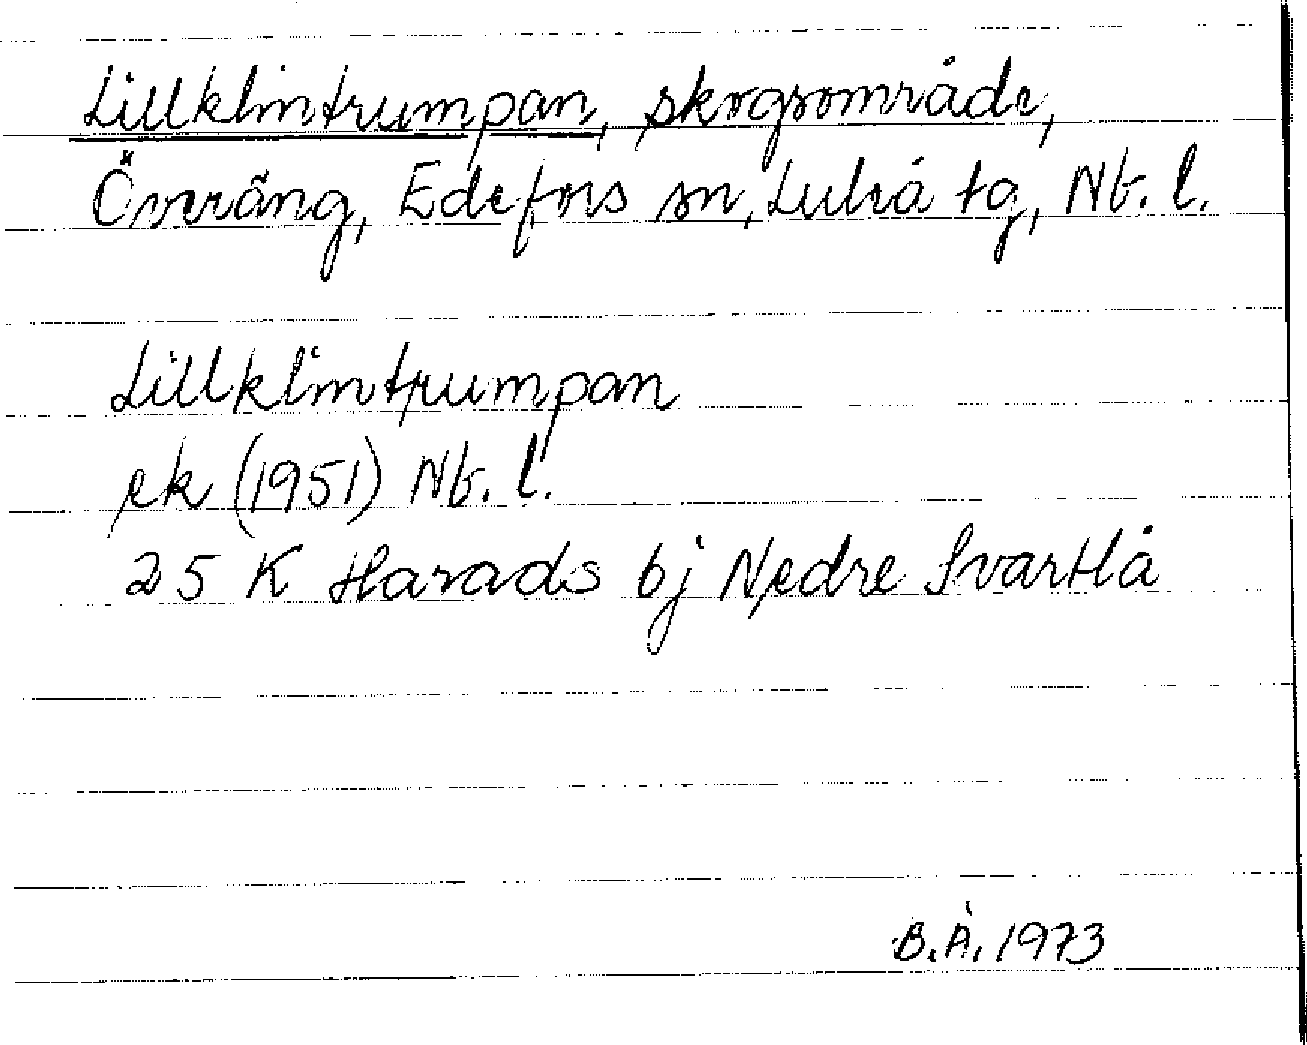 Lillklintrumpan, skogsområde,
Överäng, Edefors sn, Luleå tg, Nb. l.
Lillklintrumpan
ek (1951) Nb. l.
25 K Harads bj Nedre Svartlå
B.Å. 1973